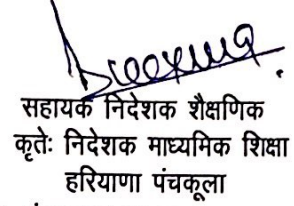 सहायक निदेशक शैक्षणिक
कृतेः निदेशक माध्यमिक शिक्षा
हरियाणा पंचकूला